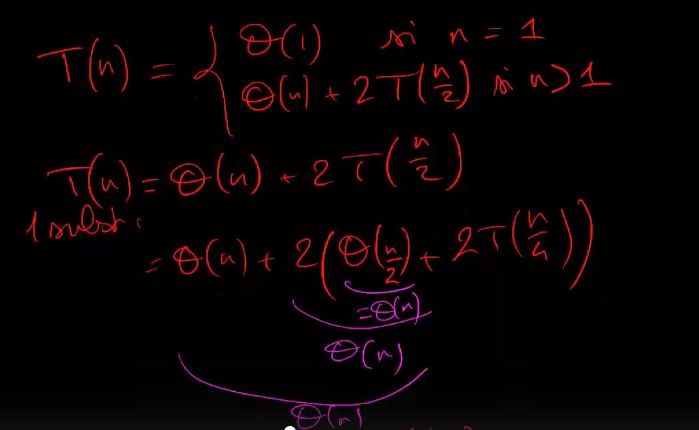 T(n) = { Θ(1) si n = 1
Θ(n) + 2T(n/2) si n>1
T(n) = Θ(n) + 2T(n/2)
1 subst.
= Θ(n) + 2(Θ(n/2) + 2T(n/4))
=Θ(n)
Θ(n)
Θ(n)